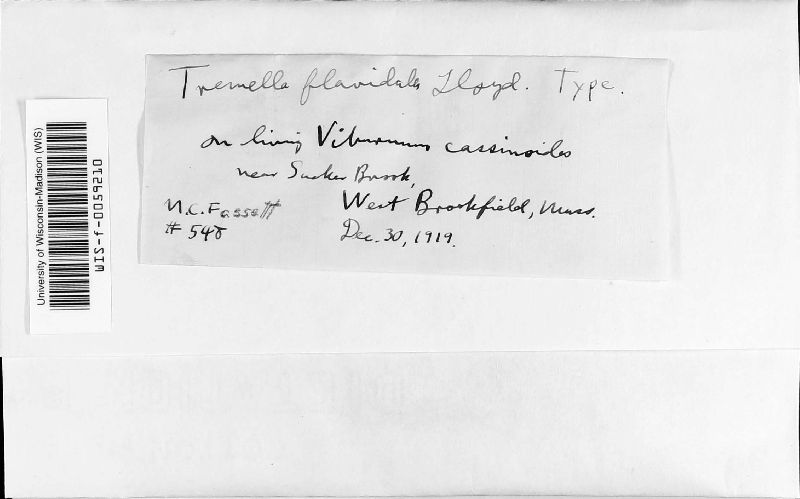 Tremella flavidula Lloyd. Type.
on living Viburnum cassinoides
near Sucker Brook,
West Brookfield, Mass.
N.C. Fassett
# 548
Dec. 30, 1919.
University of Wisconsin-Madison (WIS)
WIS-f-0059210